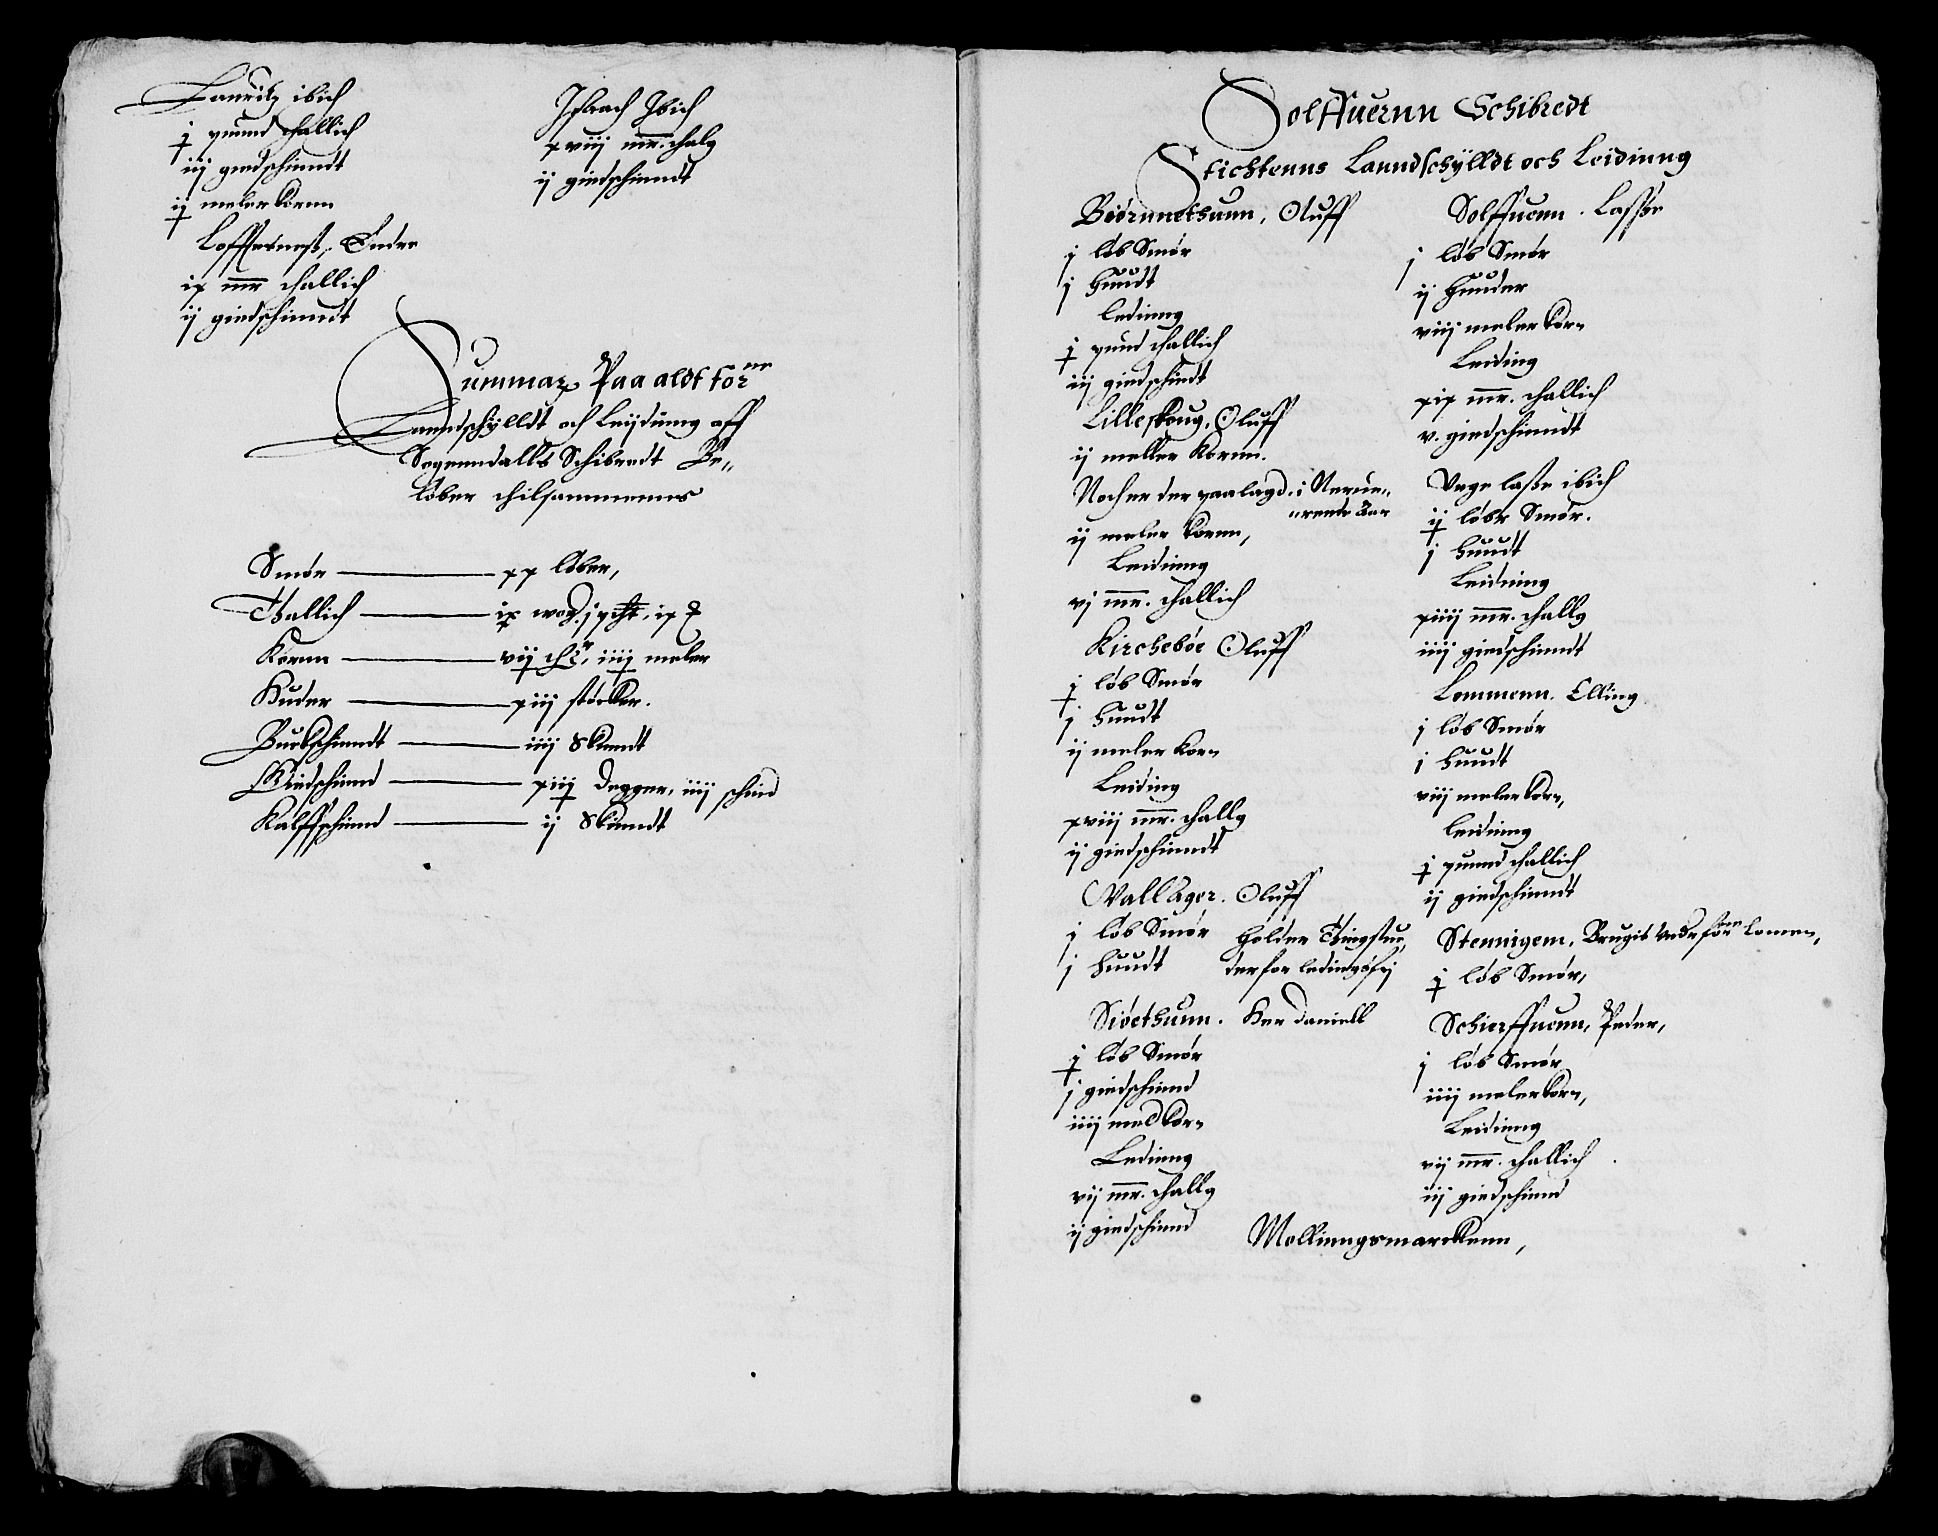 Lauritz ibich
j puund thallich
iij giedschinndt
ij meler Kornn
Loffterneß, Ender
ix mr thallich
ij giedschinndt
Isaach Ibich
xviij mr. thalg
ij giedschinndt
Summar Paa aldt for ne
Lanndschÿlldt och Leijdinng aff
Segenndalls Schibredt Be„
løber thilsammenns
Smør — xx løber,
Thallich — ix wog. j
Kornn — vij, iiij meler
Huder — xiij størcker.
Buckschinndt — iiij Skinndt
Giedschinnd — xiij Degger, iiij schind
Kalffschinnd — ij Skinndt
Solffuernn Schibredt
Stichtenns Lanndschÿlldt och Leidinng
Biørnnethunn, Oluff
j løb Smør
j huudt
Ledinng
j pund thallich
iij giedschindt
Lilleskoug, Oluff
ij meller Kornn.
Noch er der paalagd i Neruer„
„rende Aar
ij meler kornn,
Leidinng
vj mr. thallich
Kirchebøe Oluff
j løb Smør
j huudt
ij meler Korn
Leiding
xviij mr. thallg
ij giedschinndt
Vallager. Oluff
j løb Smør
j huudt
holder Thingstue,
derfor ledingsfrj
Siøethunn. Her Daniell
j løb Smør
j giedschinnd
iiij med korn
Ledinng
vij mr. thallg
ij giedschinnd
Solffuenn. Lasße
j løb Smør
ij huuder
viij meler korn
Leiding
xix mr. thallich
v. giedschinndt
Unge laße ibich
ij løbr Smør.
j huudt
Leidning
xiiij mr. thallg
iiij giedschinndt
Lommenn. Elling
j løb Smør
j huudt
viij meler korn,
leidinng
j puund thallich
ij giedschinndt
Stennigem, Brugis Underfornn Lomen,
j løb Smør,
Schierffuenn, Peder,
j løb Smør
iiij meler korn,
Leidinng
vij mr. thallich
iij giedschinnd
Mollinngsmarckenn,